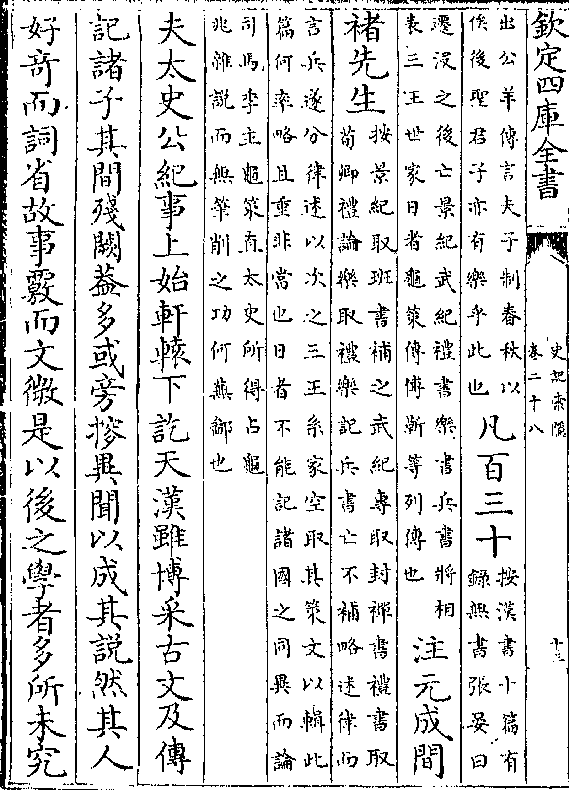 欽定四庫全書
史記索隱
卷二十八
十三
出公羊傳言夫子制春秋以
俟後聖君子亦有樂乎此也
凡百三十
按漢書十篇有
録無書張晏曰
遷没之後亡景紀武紀禮書樂書兵書將相
表三王世家日者龜策傳傅靳等列傳也
注元成間
褚先生
按景紀取班書補之武紀專取封禪書禮書取
荀卿禮論樂取禮樂記兵書亡不補略述律而
言兵遂分律述以次之三王系家空取其策文以輯此
篇何率略且重非當也日者不能記諸國之同異而論
司馬季主龜策直太史所得占龜
兆雜説而無筆削之功何蕪鄙也
夫太史公紀事上始軒轅下訖天漢雖博采古文及傳
記諸子其間殘闕蓋多或旁搜異聞以成其説然其人
好竒而詞省故事覈而文微是以後之學者多所未究